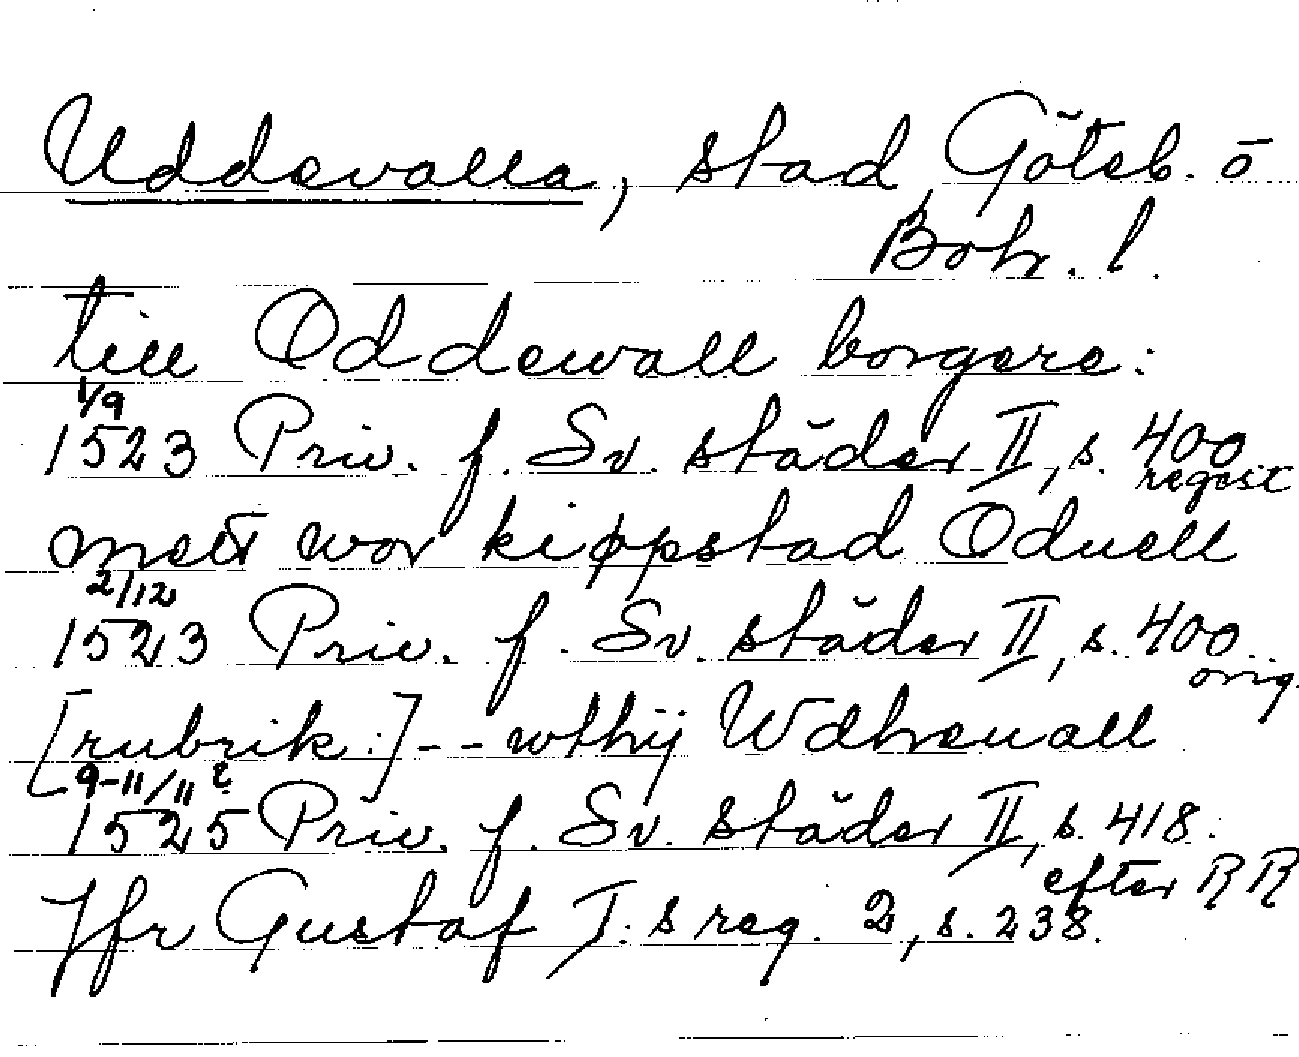 Uddevalla, stad, Göteb. o
Boh. l.
till Oddewall borgere:
1/9
1523 Priv. f. Sv. städer II, s. 400
regest
mett wor kiøpstad Oduell
2/12
1523 Priv. f. Sv. städer II, s. 400
orig.
[rubrik:] -- wthij Wdheuall
9-11/11?
1525 Priv. f. Sv. städer II, s. 418.
efter RR
Jfr Gustaf I:s reg. 2, s. 238.